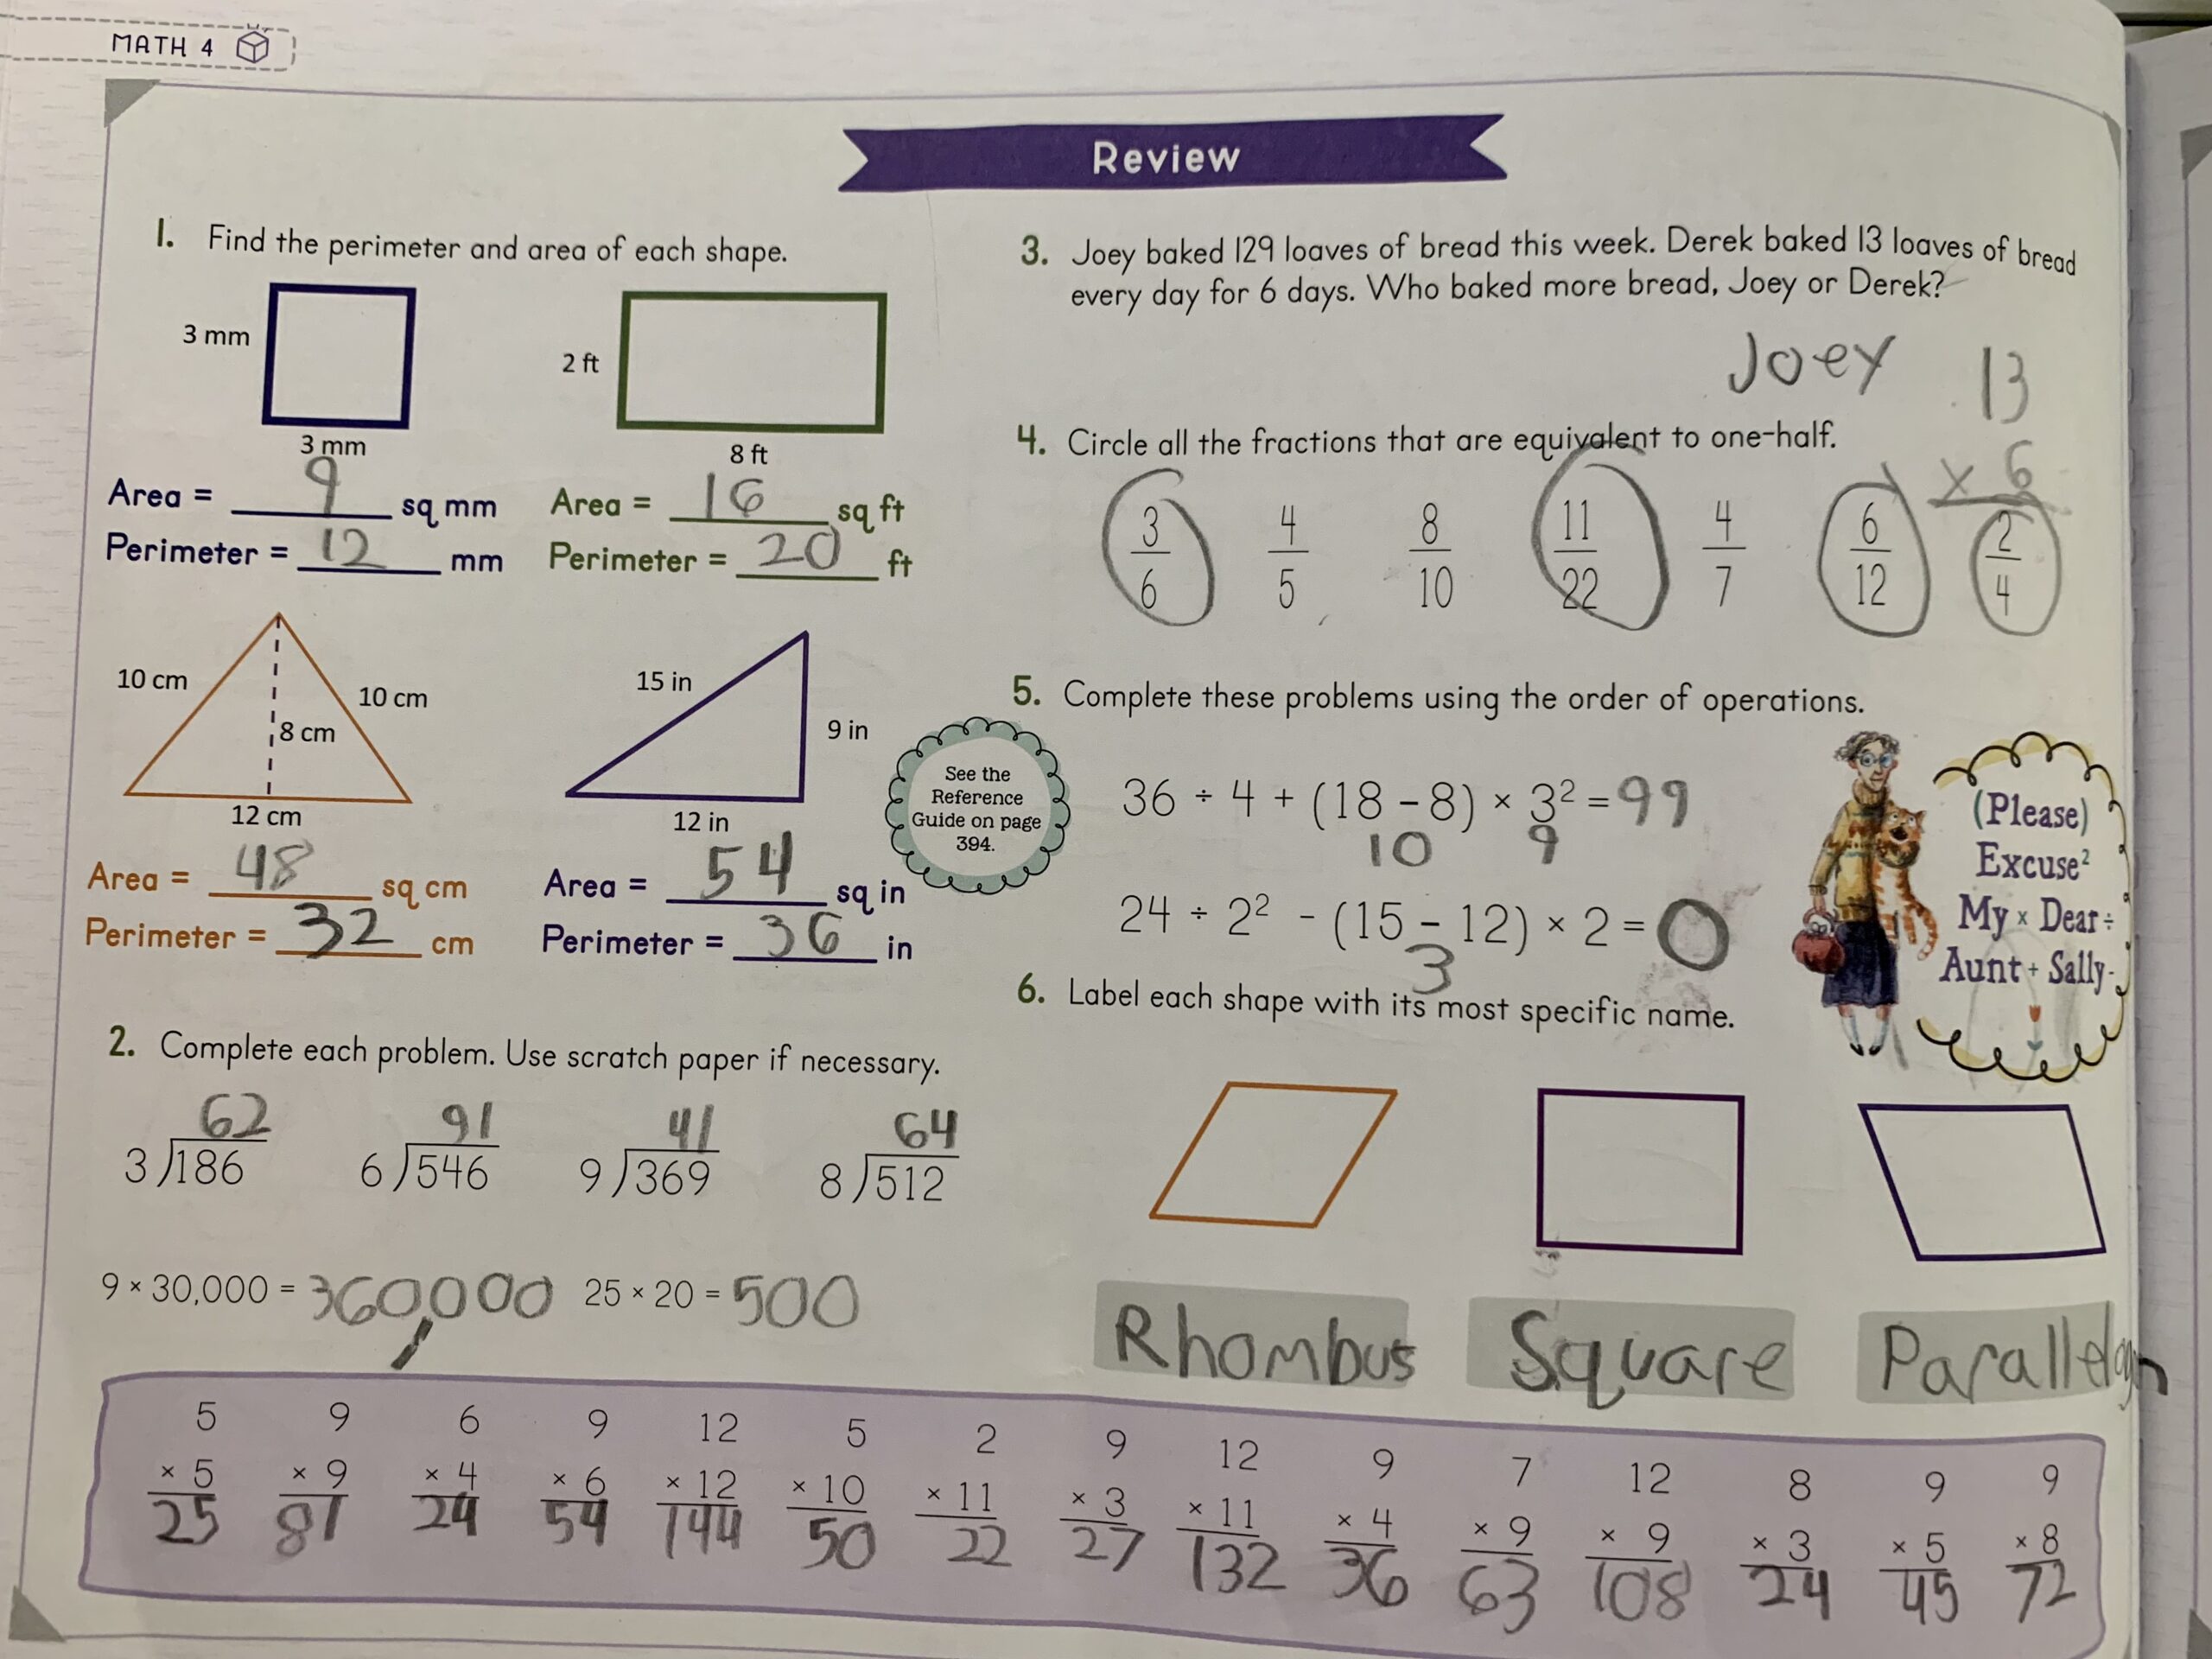 MATH 4
Review
1. Find the perimeter and area of each shape.
3 mm
3 mm
Area = 9 sq mm
Perimeter = 12 mm
2 ft
8 ft
Area = 16 sq ft
Perimeter = 20 ft
10 cm
10 cm
8 cm
12 cm
Area = 48 sq cm
Perimeter = 32 cm
15 in
9 in
12 in
Area = 54 sq in
Perimeter = 36 in
See the
Reference
Guide on page
394.
2. Complete each problem. Use scratch paper if necessary.
62
3 ⟌186
91
6 ⟌546
41
9 ⟌369
64
8 ⟌512
9 × 30,000 = 360,000
25 × 20 = 500
3. Joey baked 129 loaves of bread this week. Derek baked 13 loaves of bread
every day for 6 days. Who baked more bread, Joey or Derek?
Joey
13
x 6
4. Circle all the fractions that are equivalent to one-half.
3/6 4/5 8/10 11/22 4/7 6/12 2/4
5. Complete these problems using the order of operations.
36 ÷ 4 + (18 - 8) × 3² = 99
10 9
24 ÷ 2² - (15 - 12) × 2 = 0
3
(Please)
Excuse²
My × Dear ÷
Aunt + Sally -
6. Label each shape with its most specific name.
Rhombus Square
5 9 6 9 12 5 2 9 12 9 7 12 8 9 9
× 5 × 9 × 4 × 6 × 12 × 10 × 11 × 3 × 11 × 4 × 9 × 9 × 3 × 5 × 8
25 81 24 54 144 50 22 27 132 36 63 108 24 45 72